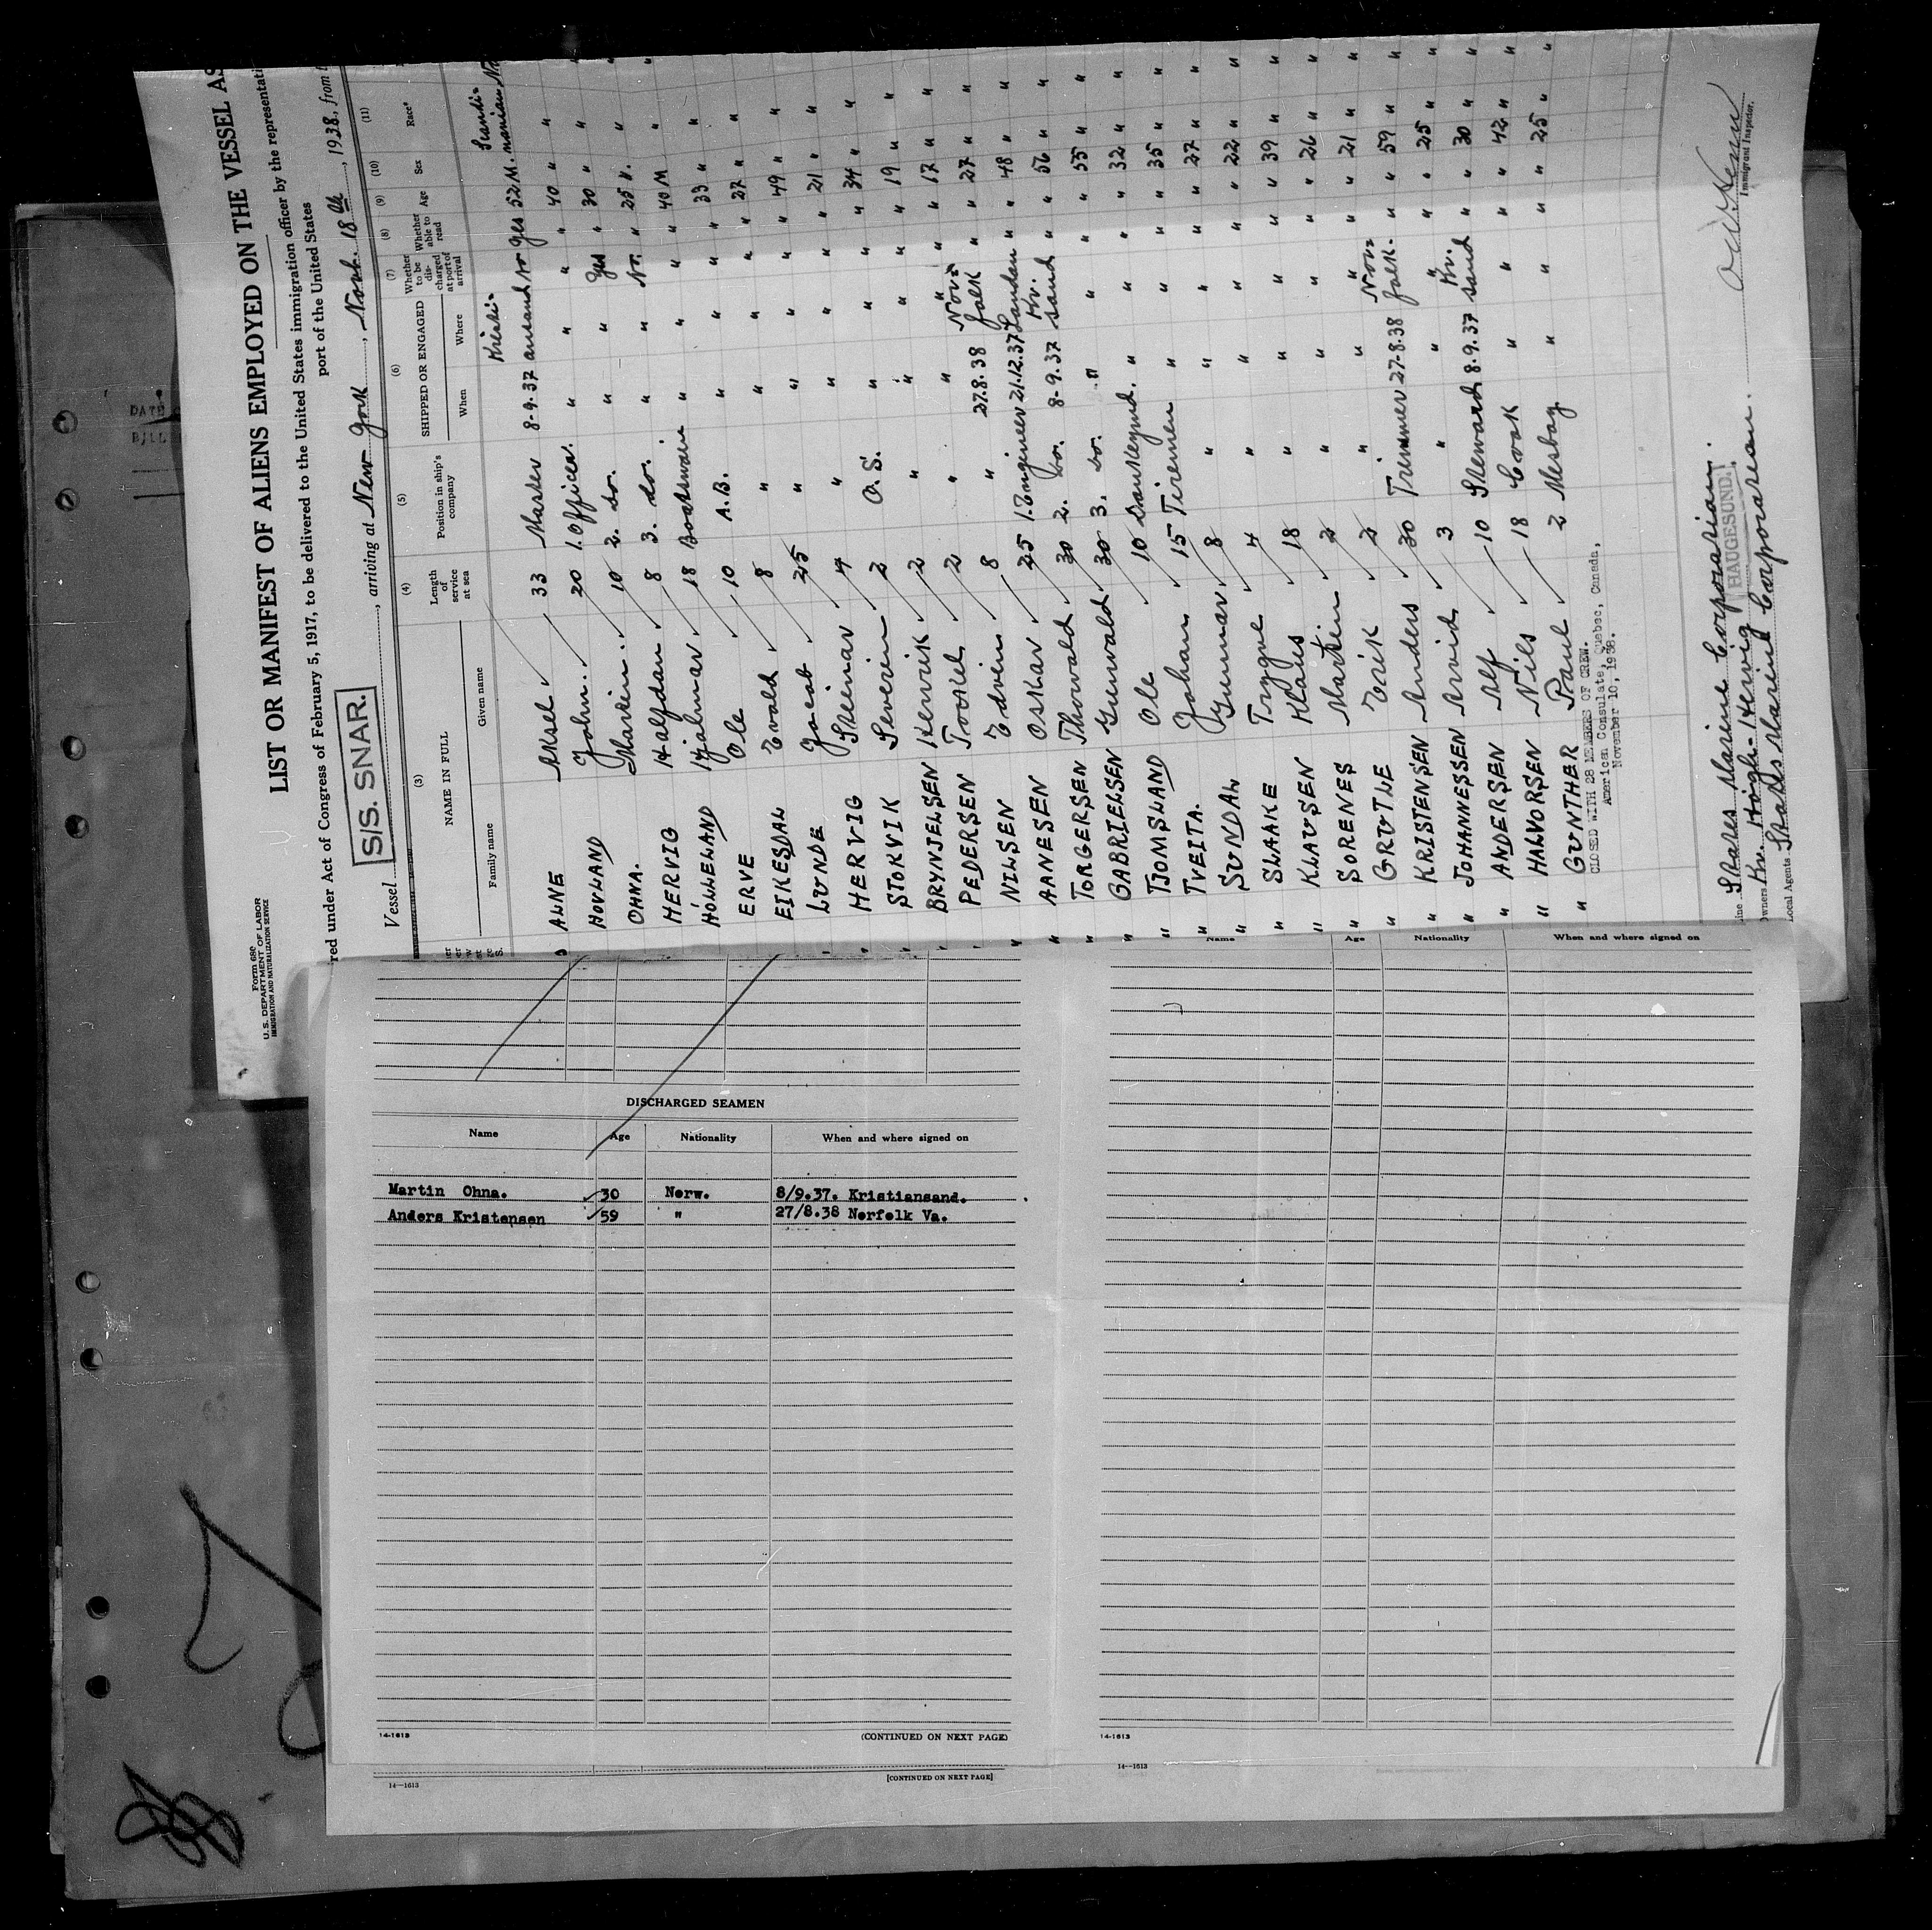 Form 680
U. S. DEPARTMENT OF LABOR
IMMIGRATION AND NATURALIZATION SERVICE
LIST OR MANIFEST OF ALIENS EMPLOYED ON THE VESSEL AS
red under Act of Congress of February 5, 1917, to be delivered to the United States immigration officer by the representati
port of the United States
Vessel S/S. SNAR., arriving at New York, Novb. 18th, 1938, from
(3) (4) (5) (6) (7) (8) (9) (10) (11)
NAME IN FULL Length of service at sea Position in ship's company SHIPPED OR ENGAGED Whether to be discharged at port of arrival Whether able to read Age Sex Race*
Family name Given name When Where
ALNE Aksel 33 Master 8-9-37 Kristiansand No Yes 52 M. Scandinavian No
HOVLAND John. 20 1. Officer. " " " " 40 " "
OHNA. Martin. 10 2. do. " " Yes " 30 " "
HERVIG Halfdan 8 3. do. " " No. " 25 " "
HÓLLELAND Hjalmar 18 Boatswain " " " " 40 M "
ERVE Ole 10 A.B. " " " " 33 " "
EIKESDAL Evald 8 " " " " " 27 " "
LUNDE Jacob 25 " " " " " 49 " "
HERVIG Steinar 4 " " " " " 21 " "
STORVIK Severin 2 O.S. " " " " 34 " "
BRYNJELSEN Kenrik 2 " " " " " 19 " "
PEDERSEN Torkel 2 " " " " " 17 " "
NILSEN Edvin 8 " 27.8.38 Norfolk " " 27 " "
AANESEN Oskar 25 1. Engineer 21.12.37 London " " 48 " "
TORGERSEN Thorvald 30 2. do. 8-9-37 Kr.sand " " 56 " "
GABRIELSEN Grunvald 30 3. do. " " " " 55 " "
TJOMSLAND Ole 10 Donkeymd. " " " " 32 " "
TVEITA. Johan 15 Firemen " " " " 35 " "
SUNDAL Gunnar 8 " " " " " 27 " "
SLAAKE Trygve 4 " " " " " 22 " "
KLAUSEN Klaus 18 " " " " " 39 " "
SORENES Martin 2 " " " " " 26 " "
GRUTLE Erik 2 " " " " " 21 " "
KRISTENSEN Anders 30 Trimmer 27-8-38 Norfolk. " " 59 " "
JOHANNESSEN Arvid 3 " " " " " 25 " "
ANDERSEN Alf 10 Steward 8-9-37 Kr.sand " " 30 " "
HALVORSEN Nils 18 Cook " " " " 42 " "
GUNTHER Paul 2 Messboy " " " " 25 " "
CLOSED WITH 28 MEMBERS OF CREW.
American Consulate, Quebec, Canada,
November 10, 1938.
Line States Marine Corporation.
Owners Kr. Høgh-Hervig HAUGESUND.
Local Agents States Marine Corporation.
Immigrant Inspector.
Name Age Nationality When and where signed on
DISCHARGED SEAMEN
Name Age Nationality When and where signed on
Martin Ohna. 30 Norw. 8/9.37. Kristiansand.
Anders Kristensen 59 " 27/8.38 Norfolk Va.
14-1613 (CONTINUED ON NEXT PAGE)
14-1613
14—1613 [CONTINUED ON NEXT PAGE]
14—1613